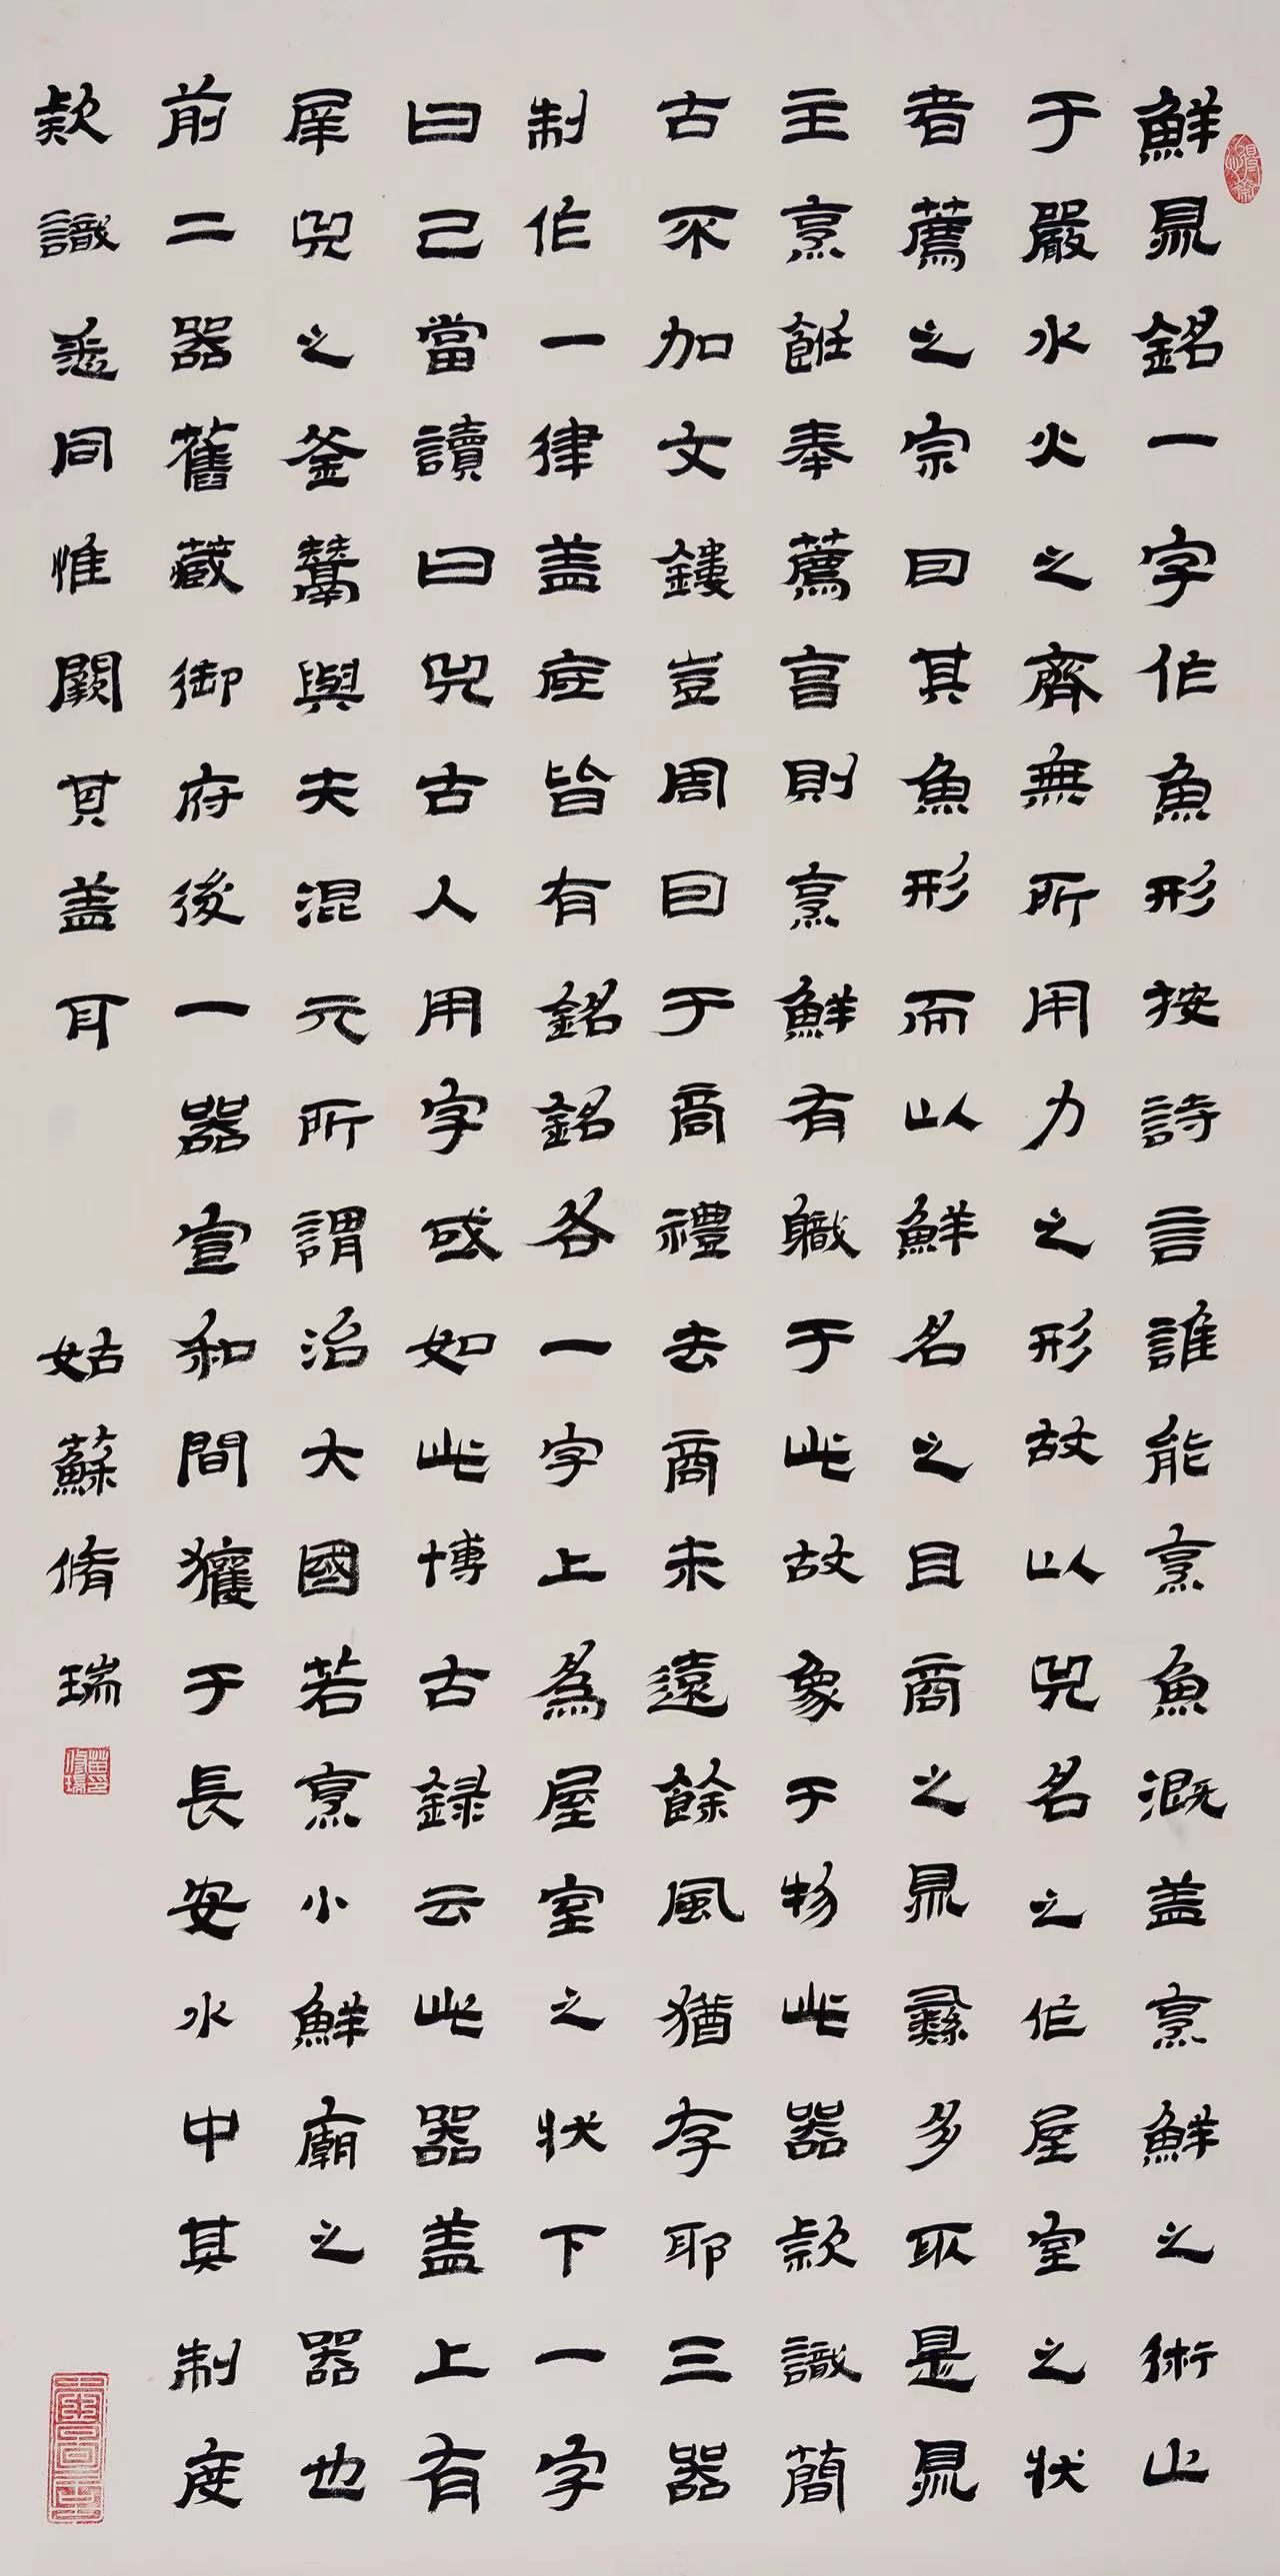 鮮鼎銘一字作魚形按詩言誰能烹魚溉盖烹鮮之術止
于嚴水火之齊無所用力之形故以兕名之作屋室之状
者薦之宗曰其魚形而以鮮名之目商之鼎彝多取是鼎
主烹飪奉薦享則烹鮮有職于此故象于物此器款識簡
古不加文鏤豈周因于商禮去商未遠餘風猶存耶三器
制作一律盖底皆有銘銘各一字上為屋室之状下一字
曰己當讀曰兕古人用字或如此博古録云此器盖上有
犀兕之釜鬵與夫混元所謂治大國若烹小鮮廟之器也
前二器舊藏御府後一器宣和間獲于長安水中其制度
款識悉同惟闕其盖耳
姑蘇脩瑞